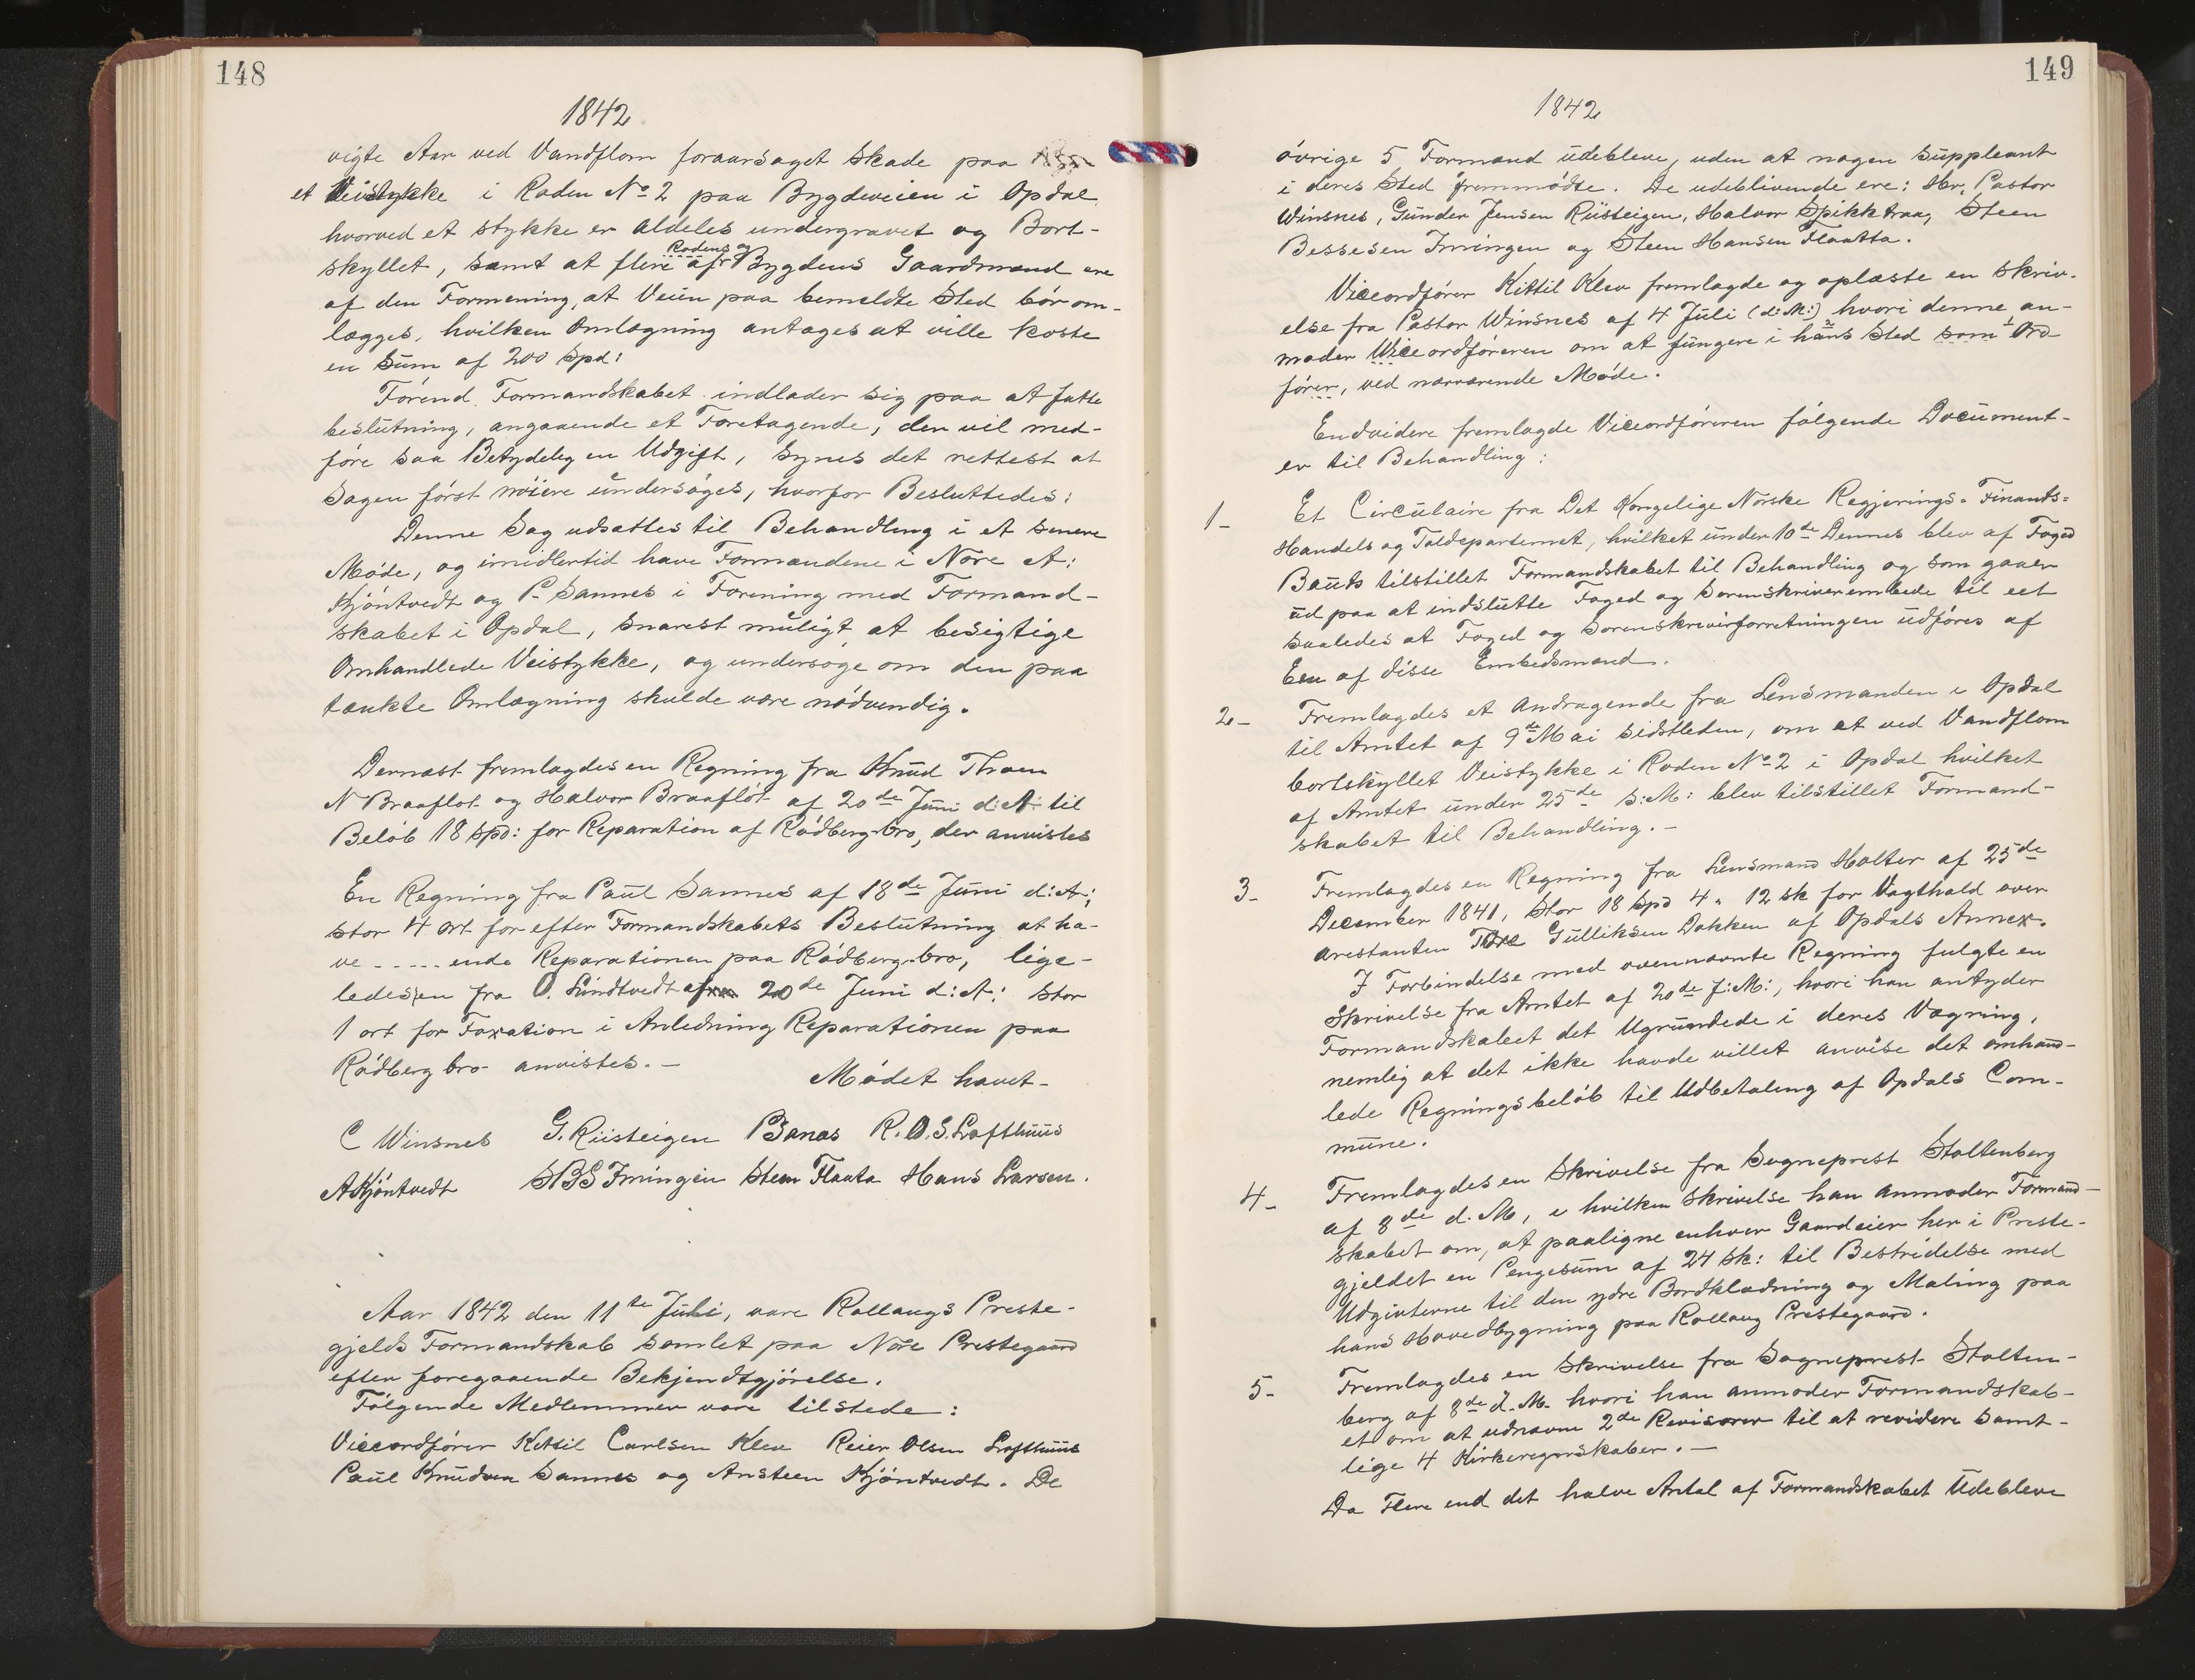 148
1842
vigte Aar ved Vandflom foraarsaget Skade paa
et Veistykke i Roden No 2 paa Bygdeveien i Opdal
hvorved et stykke er aldeles undergravet og Bort-
Rodens og
skyllet, samt at flere af Bygdens Gaardmænd ere
af den Formening, at Veien paa bemeldte Sted bør om-
lægges, hvilken Omlægning antages at ville koste
en Sum af 200 Spd:
Førend Formandskabet indlader sig paa at fatte
beslutning, angaaende et Foretagende, der vil med-
føre saa Betydelig en Udgift, synes det rettest at
Sagen først nøiere undersøges, hvorfor Besluttedes:
Denne Sag udsættes til Behandling i et senere
Møde, og imidlertid have Formændene i Nore A:
Kjøntvedt og P. Sannes i Forening med Formand-
skabet i Opdal, snarest muligt at besigtige
Omhandlede Veistykke, og undersøge om den paa
tænkte Omlægning skulde være nødvendig.
Dernæst fremlagdes en Regning fra Knud Thoen
N Braaflot og Halvor Braafløt af 20de Juni d:A: til
Beløb 18 Spd: for Reparation af Rødberg bro, der anvistes
En Regning fra Paul Sannes af 18de Juni d:A:,
stor 4 ort for efter Formandskabets Beslutning at ha-
ve ..... ende Reparationen paa Rødberg bro, lige-
ledes en fra O. Lundtvedt af 20de Juni d:A: stor
1 ort for Taxation i Anledning Reparationen paa
Rødberg bro anvistes. -
Mødet hævet-
C Winsnes G. Riisteigen Banas R. O. S. Lofthuus
A Kjöntvedt SBS Imingen Steen Flaata Hans Larsen.
Aar 1842 den 11te Juli, vare Rollaugs Preste-
gjelds Formandskab samlet paa Nore Prestegaard
efter foregaaende Bekjendtgjørelse.
Følgende Medlemmer vare tilstede:
Viceordfører Kittil Carlsen Klev Reier Olsen Lofthuus
Paul Knudsen Sannes og Ansteen Kjöntvedt. De
149
1842
øvrige 5 Formænd udebleve, uden at nogen Suppleant
i deres Sted fremmødte. De udeblivende ere: Hr. Pastor
Winsnes, Gunder Jensen Riisteigen, Halvor Spikktraa, Steen
Bessesen Imingen og Steen Hansen Flaatta.
Viceordfører Kittil Klev fremlagde og oplæste en Skriv-
else fra Pastor Winsnes af 4 Juli (d:M:) hvori denne an-
moder Viceordføreren om at fungere i hans Sted som Ord
fører, ved nærværende Møde.
Endvidere fremlagde Viceordføreren følgende Document-
er til Behandling:
1- Et Circulaire fra Det Kongelige Norske Regjerings- Finants-
Handels og Toldepartemet, hvilket under 10de Dennes blev af Foged
Bauts tilstillet Formandskabet til Behandling og som gaaer
ud paa at indslutte Foged og Sorenskriverembede til eet
saaledes at Foged og Sorenskriverforretningen udføres af
Een af disse Embedsmænd.
2- Fremlagdes et Andragende fra Lensmanden i Opdal
til Amtet af 9de Mai sidstleden, om at ved Vandflom
bortskyllet Veistykke i Roden No 2 i Opdal hvilket
af Amtet under 25de s:M: blev tilstillet Formand-
skabet til Behandling. -
3- Fremlagdes en Regning fra Lensmand Holter af 25de
December 1841, stor 18 Spd 4 " 12 sk for Vagthold over
arestanten Tore Gulliksen Dokken af Opdals Annex.
I Forbindelse med ovennævnte Regning fulgte en
Skrivelse fra Amtet af 20de f:M:, hvori han antyder
Formandskabet det Ugrundede i deres Vægring,
nemlig at det ikke havde villet anvise det omhand-
lede Regningsbeløb til Udbetaling af Opdals Com-
mune.
4- Fremlagdes en Skrivelse fra Sogneprest Stoltenberg
af 8de d. M, i hvilken Skrivelse han anmoder Formand-
skabet om, at paaligne enhver Gaardeier her i Preste-
gjeldet en Pengesum af 24 Sk: til Bestridelse med
Udgivterne til den ydre Bordklædning og Maling paa
hans Hovedbygning paa Rollaug Prestegaard.
5- Fremlagdes en Skrivelse fra Sogneprest Stolten-
berg af 8de d. M. hvori han anmoder Formandskab-
et om at udnævne 2de Revisorer til at revidere samt-
lige 4 Kirkeregnskaber. -
Da Flere end det halve Antal af Formandskabet Udebleve